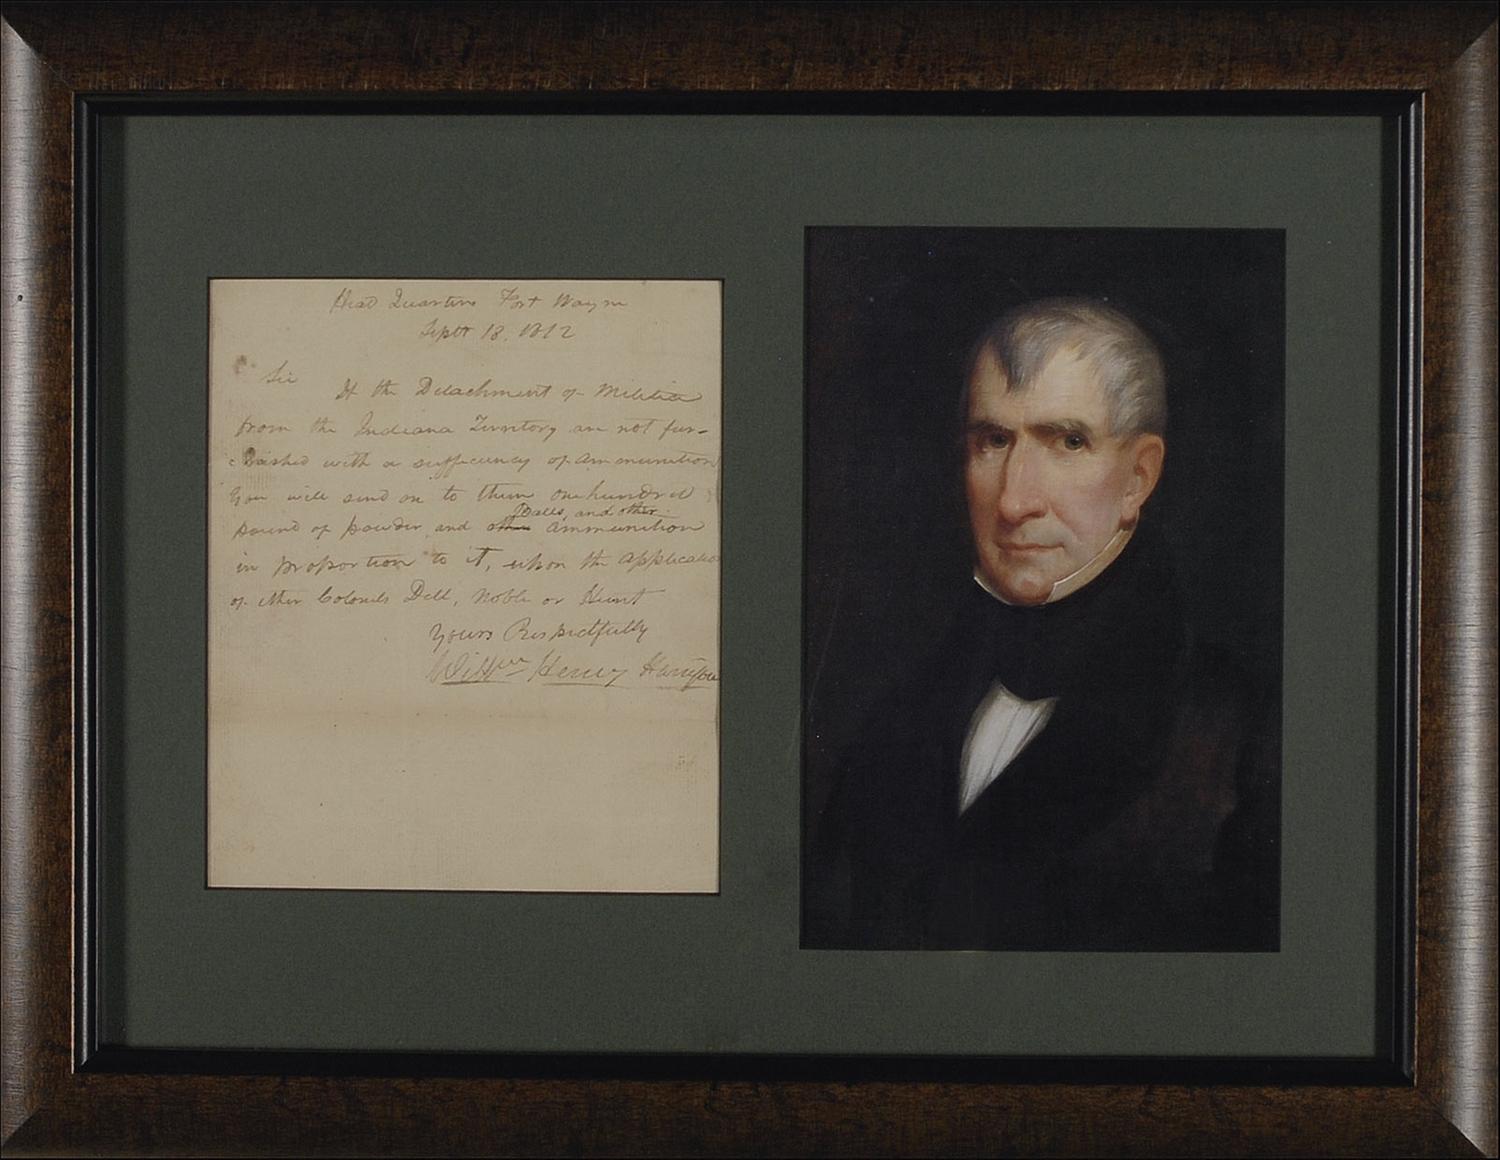 Head Quarters Fort Wayne
Septr 18. 1812
Sir If the Detachment of Militia
from the Indiana Territory are not fur-
nished with a sufficiency of ammunition
you will send on to them one hundred
pound of powder and other Balls, and other ammunition
in proportion to it, upon the application
of either Colonels Dill, Noble or Hunt
Yours Respectfully
Willm Henry Harrison